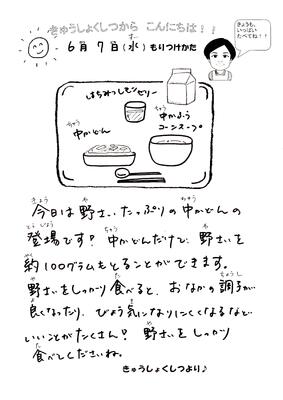 きゅうしょくしつから こんにちは!!
きょうも、
いっぱい
たべてね!!
6月 7日(水) もりつけかた
はちみつレモンゼリー
中かふう
コーンスープ
中かどん
今日は野さいたっぷりの中かどんの
登場です! 中かどんだけで、野さいを
約100グラムもとることができます。
野さいをしっかり食べると、おなかの調子が
良くなったり、びょう気になりにくくなるなど
いいことがたくさん! 野さいをしっかり
食べてくださいね。
きゅうしょくしつより♪